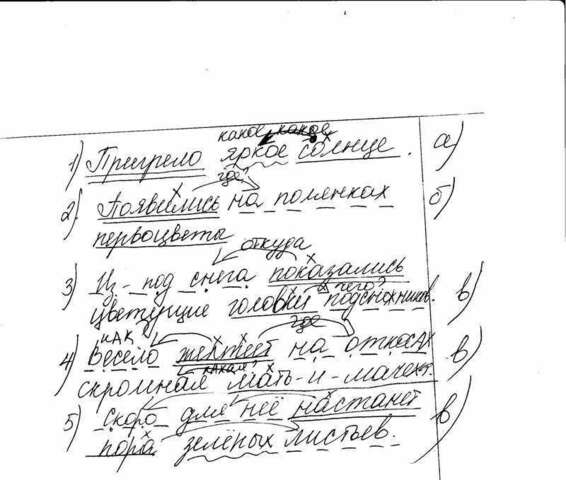 какое какое
1) Пригрело яркое солнце. а)
где?
2) Появились на полянках б)
первоцветы
откуда
3) Из-под снега показались
чего?
цветущие головки подснежников. в)
как где
4) Весело желтеет на откосах в)
какая?
скромная мать-и-мачеха.
5) Скоро для неё настанет в)
пора зелёных листьев.